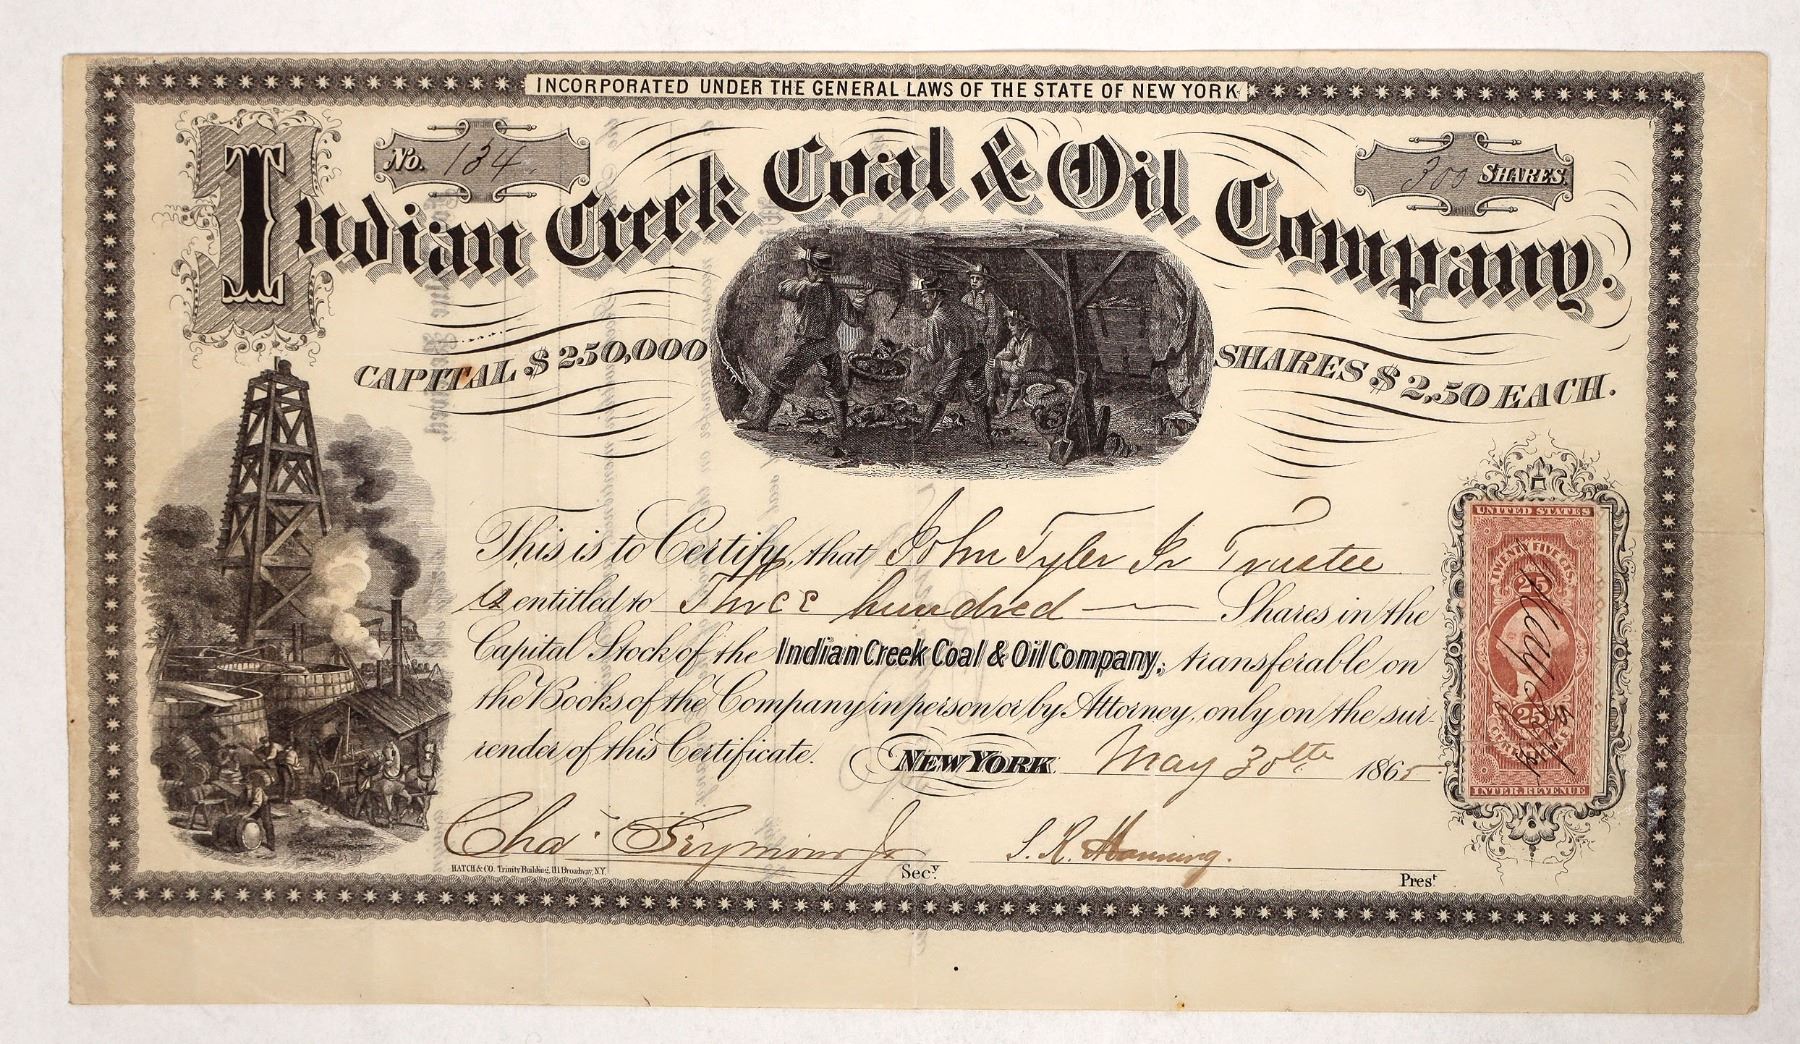 INCORPORATED UNDER THE GENERAL LAWS OF THE STATE OF NEW YORK
No. 134.
300 SHARES.
Indian Creek Coal & Oil Company.
CAPITAL $250,000
SHARES $2,50 EACH.
This is to Certify, that John Tyler Jr Trustee
is entitled to Three hundred Shares in the
Capital Stock of the Indian Creek Coal & Oil Company, transferable on
the Books of the Company in person or by Attorney, only on the sur-
render of this Certificate. NEW YORK May 30th 1865
UNITED STATES
TWENTY FIVE CTS.
25
25
CERTIFICATE
INTER. REVENUE
Chas. Seymour Jr Secy
S. R. Manning. Prest
HATCH & CO. Trinity Building, 111 Broadway, N.Y.